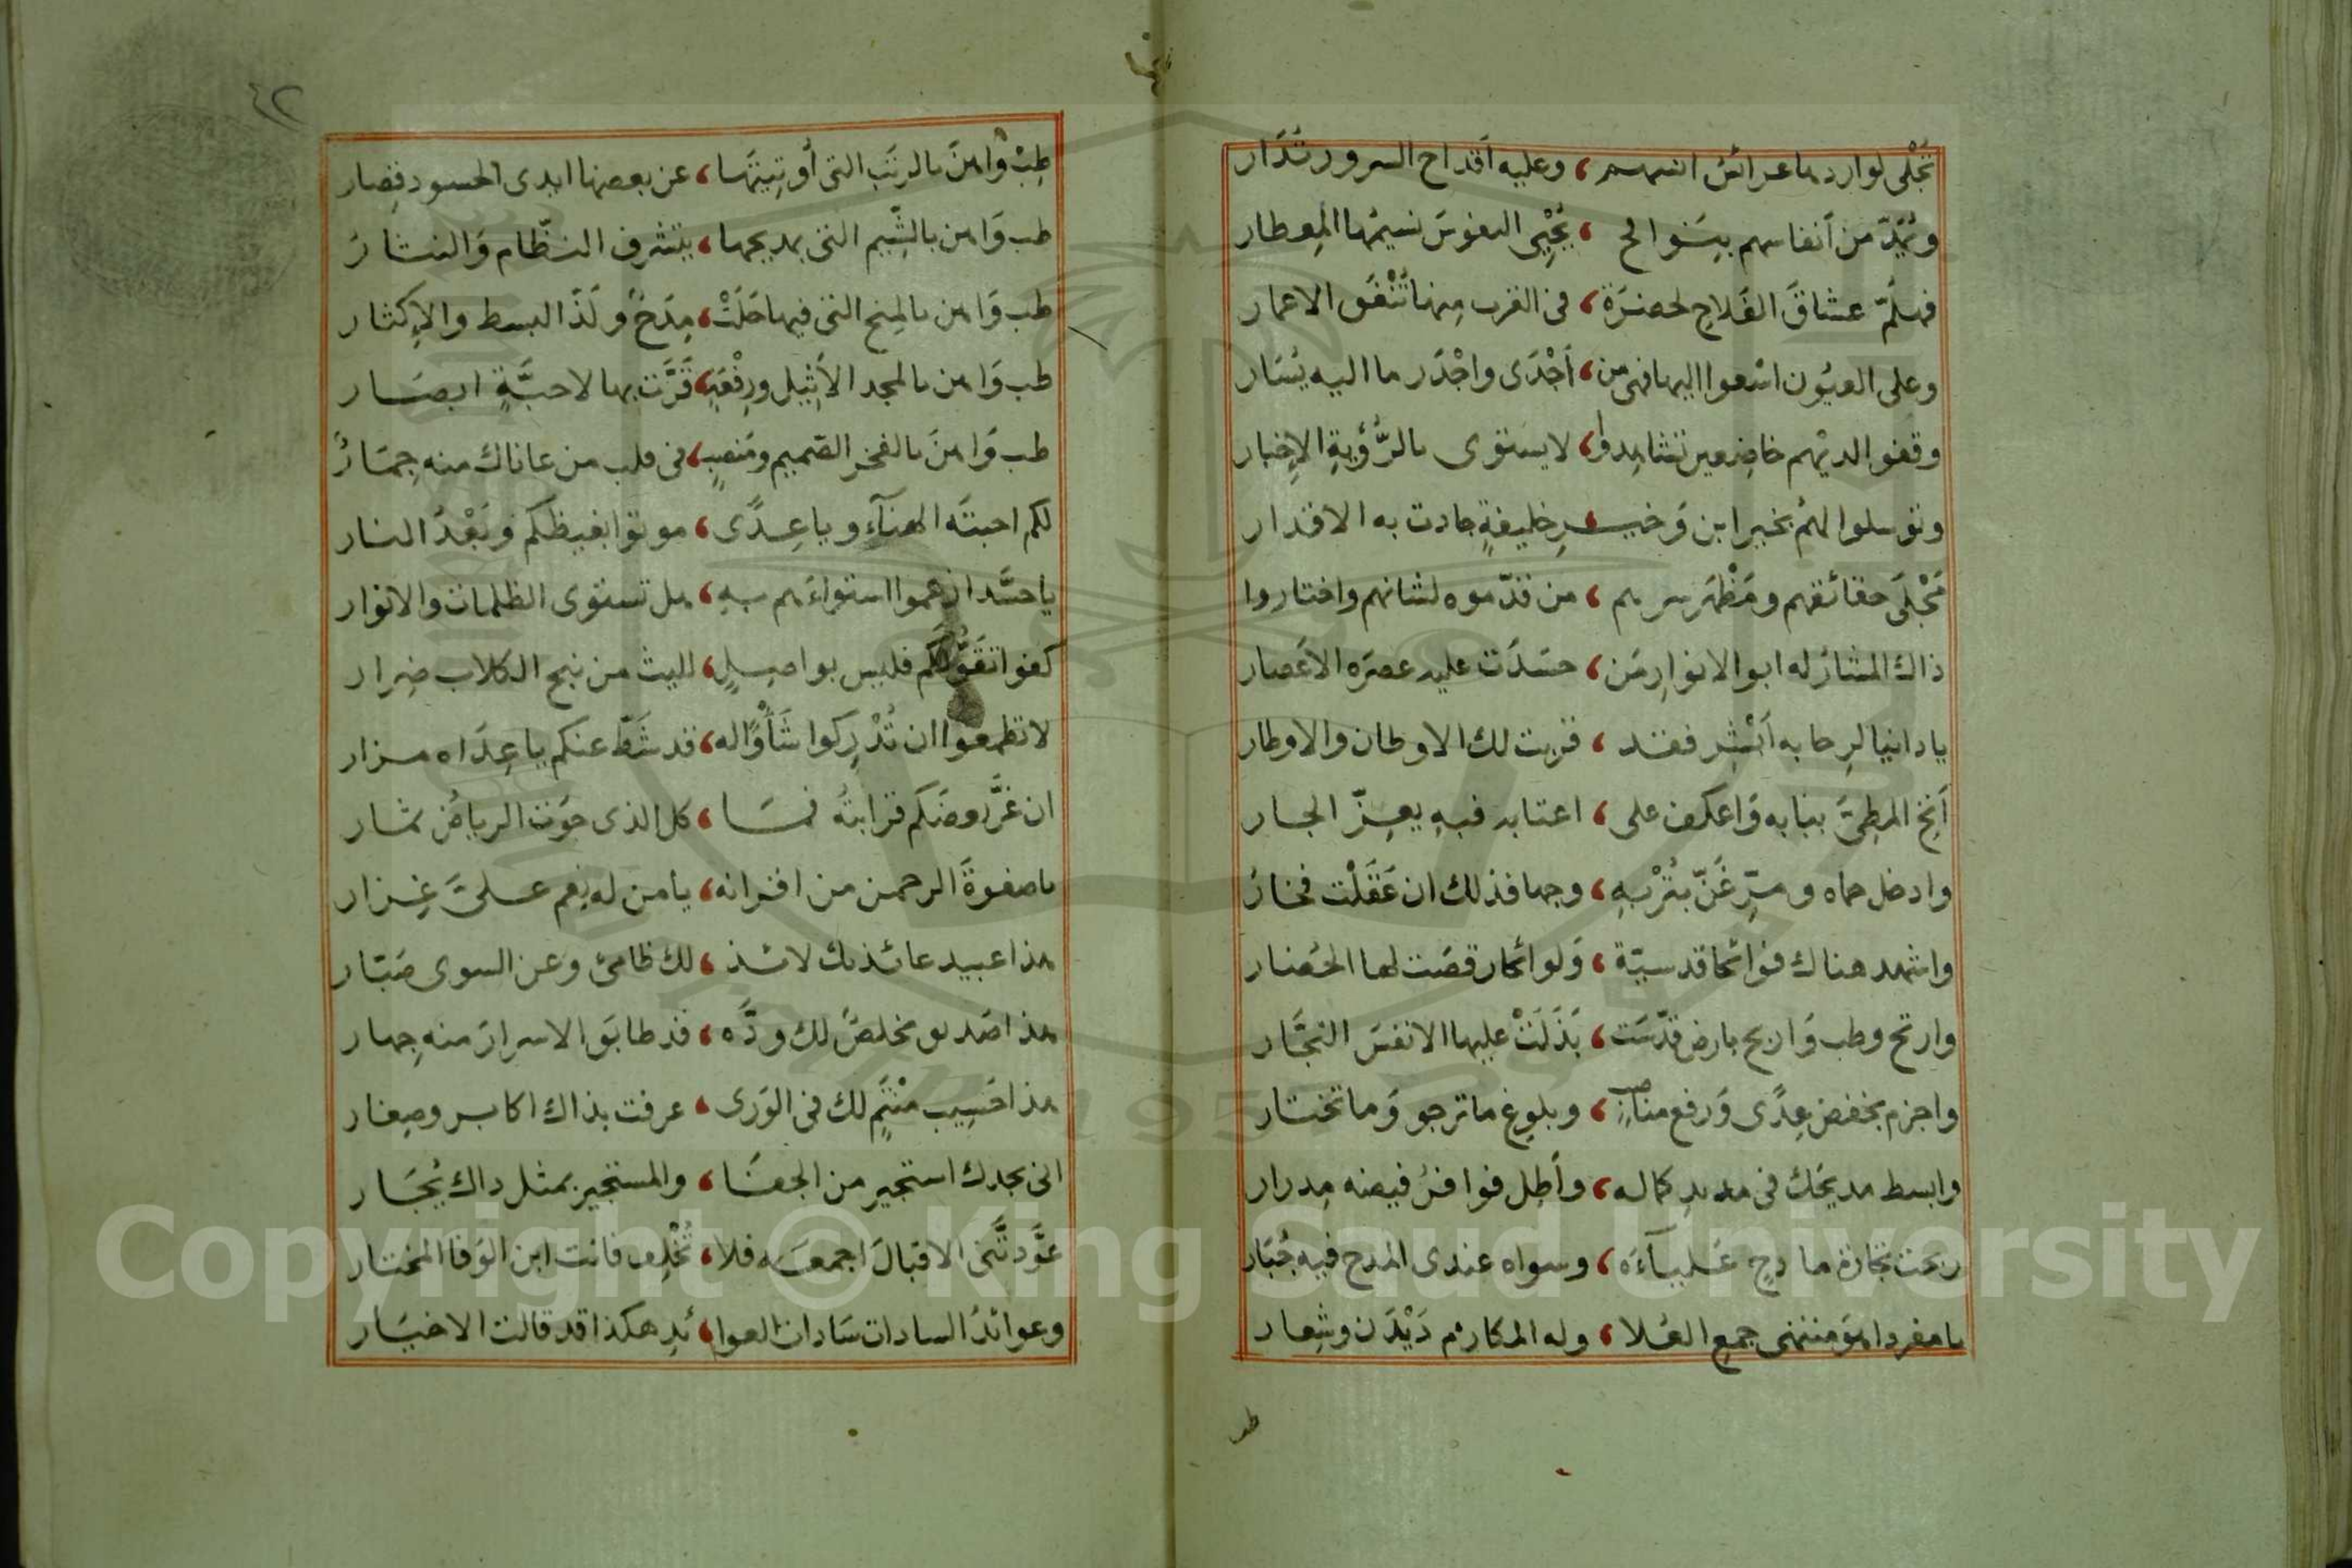 تُجْلى لواردها عرائس انسهم ، وعليه اَقداح السرور تُدَار
وتُمِدّ من اَنفاسهم بسَنوافح ، يُحْيِى النفوسَ نسيمُها المِعطار
فهلُمّ عشاقَ الفَلاحِ لحضرَة ، فى القرب منها تُنْفَق الاعمار
وعلى العيُون اسْعوا اليها فهى من ، اَجْدَى واجْدَر ما اليه يُسَار
وقفوا لديْهم خاضعين تشاهِدوا ، لا يستوى بالرُّؤيةِ الإخبار
وتوسلوا لهمُ بخير ابن وَخيـرِ خليفةٍ جادت به الاقدار
مَجْلَى حقائقهم ومَظْهَر سرهم ، من قدّموه لشانهم واختاروا
ذاك المشارُ له ابو الانوارِ مَن ، حسَدَت عليه عصرَه الاَعصار
يا دانيا لِرحابه اَبْشِر فقد ، قربت لك الاوطان والاوطار
اَنِخِ المطِىَّ ببابه وَاعكف على ، اعتابه فبهِ يعِزّ الجار
وادخل حماه ومَرِّغَنّ بتُرْبهِ ، وجها فذلك ان عَقَلْت فخارُ
واشهد هناك فوائحا قدسيّة ، وَلوائحا رقصَت لها الحُضار
وارتح وطب وَاربح بارض قدّسَت ، بَذَلَتْ عليها الانفسَ التجَّار
واجزم بخفض عِدًى وَرفع مناصبٍ ، وبلوغ ما ترجو وَما تختار
وابسط مديحَك فى مديدِ كماله ، وأطِل فوافرُ فيضه مِدرار
ربحت تجارة مادحٍ عَلياَءَه ، وسواه عندى المدح فيه جُبَار
يا مفردا هو منتهى جمع العُلا ، وله المكارم دَيْدَن وشِعار
طب
٤٢
طِبْ وَاهنَ بالرتَب التى أوتِيتَها ، عن بعضها ايدى الحسود قِصار
طب وَاهن بالشِّيم التى بمديحها ، يتشرف النظّام وَالنثارُ
طب وَاهن بالمِنح التى فيها حَلَتْ ، مِدَحٌ ولَذّ البسط والإكثار
طب وَاهن بالمجد الاَثِيل ورِفْعةٍ ، قَرَّت بها لاحبَّةٍ ابصَار
طب وَاهنَ بالفخر الصّميم ومَنصبٍ ، فى قلب من عاناك منه جِمَارُ
لكم احبتَه الهنآء ويا عِدًى ، موتوا بغيظكم وبَعْدُ النار
يا حسَّدا زعموا استواءَهم بهِ ، هل تستوى الظلمات والانوار
كفوا تقَوُّلَكم فليس بواصِلٍ ، لليث من نبح الكلاب ضِرار
لا تطمعوا ان تُدْرِكوا شَأْوًا له ، قد شَطّ عنكم يا عِدَاه مزار
ان غَرَّ بعضَكم قرابتهُ فمَا ، كل الذى حوَت الرياضُ ثمار
يا صفوةَ الرحمن من اقرانه ، يا من له نِعم علىَّ غِزار
هذا عبيد عائذ بك لائذ ، لك ظامئ وعن السوى صَبّار
هذا صَديق مخلصٌ لك ودَّه ، قد طابَق الاسرارَ منه جِهار
هذا حَسِيب مُنْتَمٍ لك فى الوَرى ، عرفت بذاك اكابر وصِغار
انى بجدك استجير من الجفَا ، والمستجير بمثل ذاك يُجَار
عَوَّدتَّنى الاقبَالَ اجمعَه فلا ، تُخْلِف فانت ابن الوَفا المختار
وعوائدُ السادات سَادات العوا ، ئدِ هكذا قد قالت الاخيَار
Copyright © King Saud University
1957